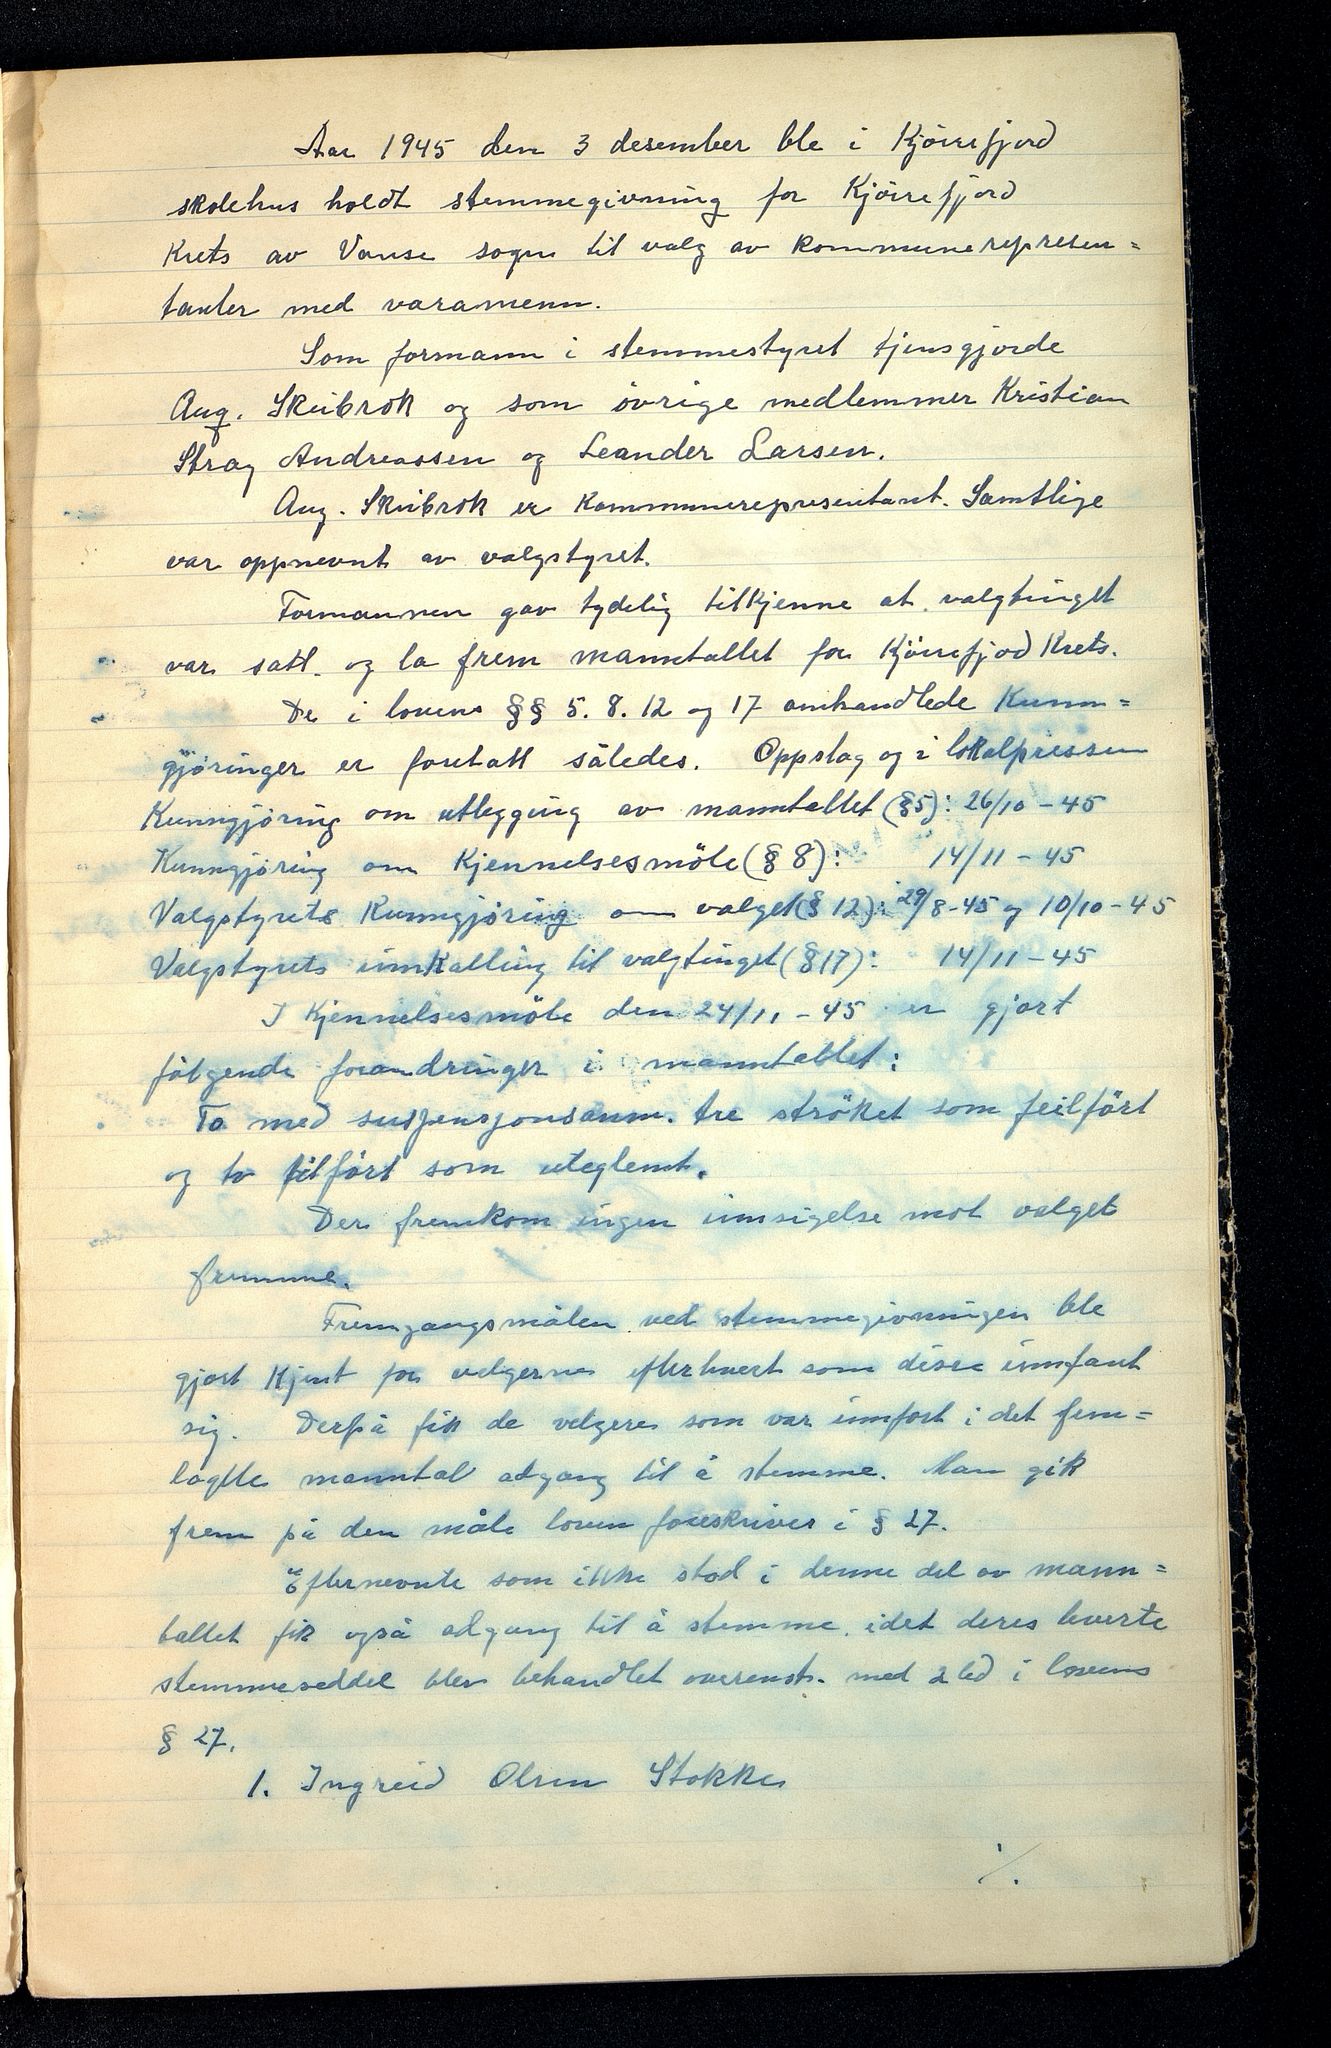 Aar 1945 den 3 desember ble i Kjørrefjord
skolehus holdt stemmegivning for Kjørrefjord
Krets av Vanse sogn til valg av kommunerepresen=
tanter med varamenn.
Som formann i stemmestyret tjensgjorde
Aug. Skeibrok og som øvrige medlemmer Kristian
Stray Andreassen og Leander Larsen.
Aug. Skeibrok er Kommunerepresentant. Samtlige
var oppnevnt av valgstyret.
Formannen gav tydelig tilkjenne at valgtinget
var satt og la frem manntallet for Kjørrefjod Krets.
De i lovens §§ 5. 8. 12 og 17 omhandlede Kunn=
gjøringer er foretatt således. Oppslag og i lokalpressen
Kunngjøring om utlegging av manntallet (§5): 26/10 - 45
Kunngjøring om Kjennelsesmöte (§ 8): 14/11 - 45
Valgstyrets Kunngjøring om valget (§ 12): 29/8-45 og 10/10 - 45
Valgstyrets innkalling til valgtinget (§17): 14/11 - 45
I Kjennelsesmöte den 24/11 - 45 er gjort
følgende forandringer i manntallet:
To med suspensjonsanm. tre strøket som feilført
og to tilført som uteglemt.
Der fremkom ingen innsigelse mot valget
fremme.
Fremgangsmåten ved stemmegivningen ble
gjort Kjent for velgerne efterhvert som disse innfant
sig. Derpå fik de velgere som var innført i det frem=
lagte manntal adgang til å stemme. Man gik
frem på den måte loven foreskriver i § 27.
Efternevnte som ikke stod i denne del av mann=
tallet fik også adgang til å stemme, idet deres leverte
stemmeseddel blev behandlet overenst. med 2 led i lovens
§ 27.
1. Ingreid Olsen Stokke
./.